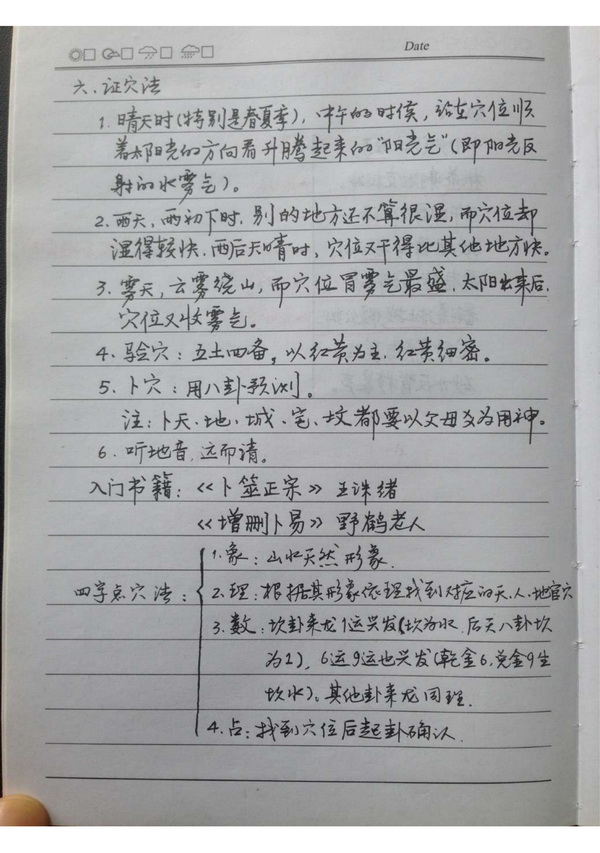 Date
六.证穴法
1.晴天时(特别是春夏季),中午的时侯,站在穴位顺
着太阳光的方向看升腾起来的“阳光气”(即阳光反
射的水雾气)。
2.雨天,雨初下时,别的地方还不算很湿,而穴位却
湿得较快.雨后天晴时,穴位又干得比其他地方快。
3.雾天,云雾绕山,而穴位冒雾气最盛.太阳出来后.
穴位又收雾气。
4.验穴:五土四备,以红黄为主.红黄细密。
5.卜穴:用八卦预测。
注:卜天、地、城、宅、坟都要以父母爻为用神。
6.听地音,远而清。
入门书籍:《卜筮正宗》王洙绪
《增删卜易》野鹤老人
四字点穴法:
1.象:山水天然形象.
2.理:根据其形象依理找到对应的天.人.地官穴
3.数:坎卦来龙1运兴发(坎为水.后天八卦坎
为1)、6运9运也兴发(乾金6,兑金9生
坎水)。其他卦来龙同理.
4.占:找到穴位后起卦确认.